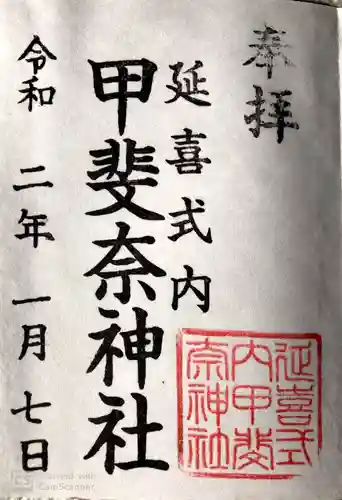 奉拝
延喜式内
甲斐奈神社
令和 二年 一月 七日
延喜式
内甲斐
奈神社
CS CamScanner